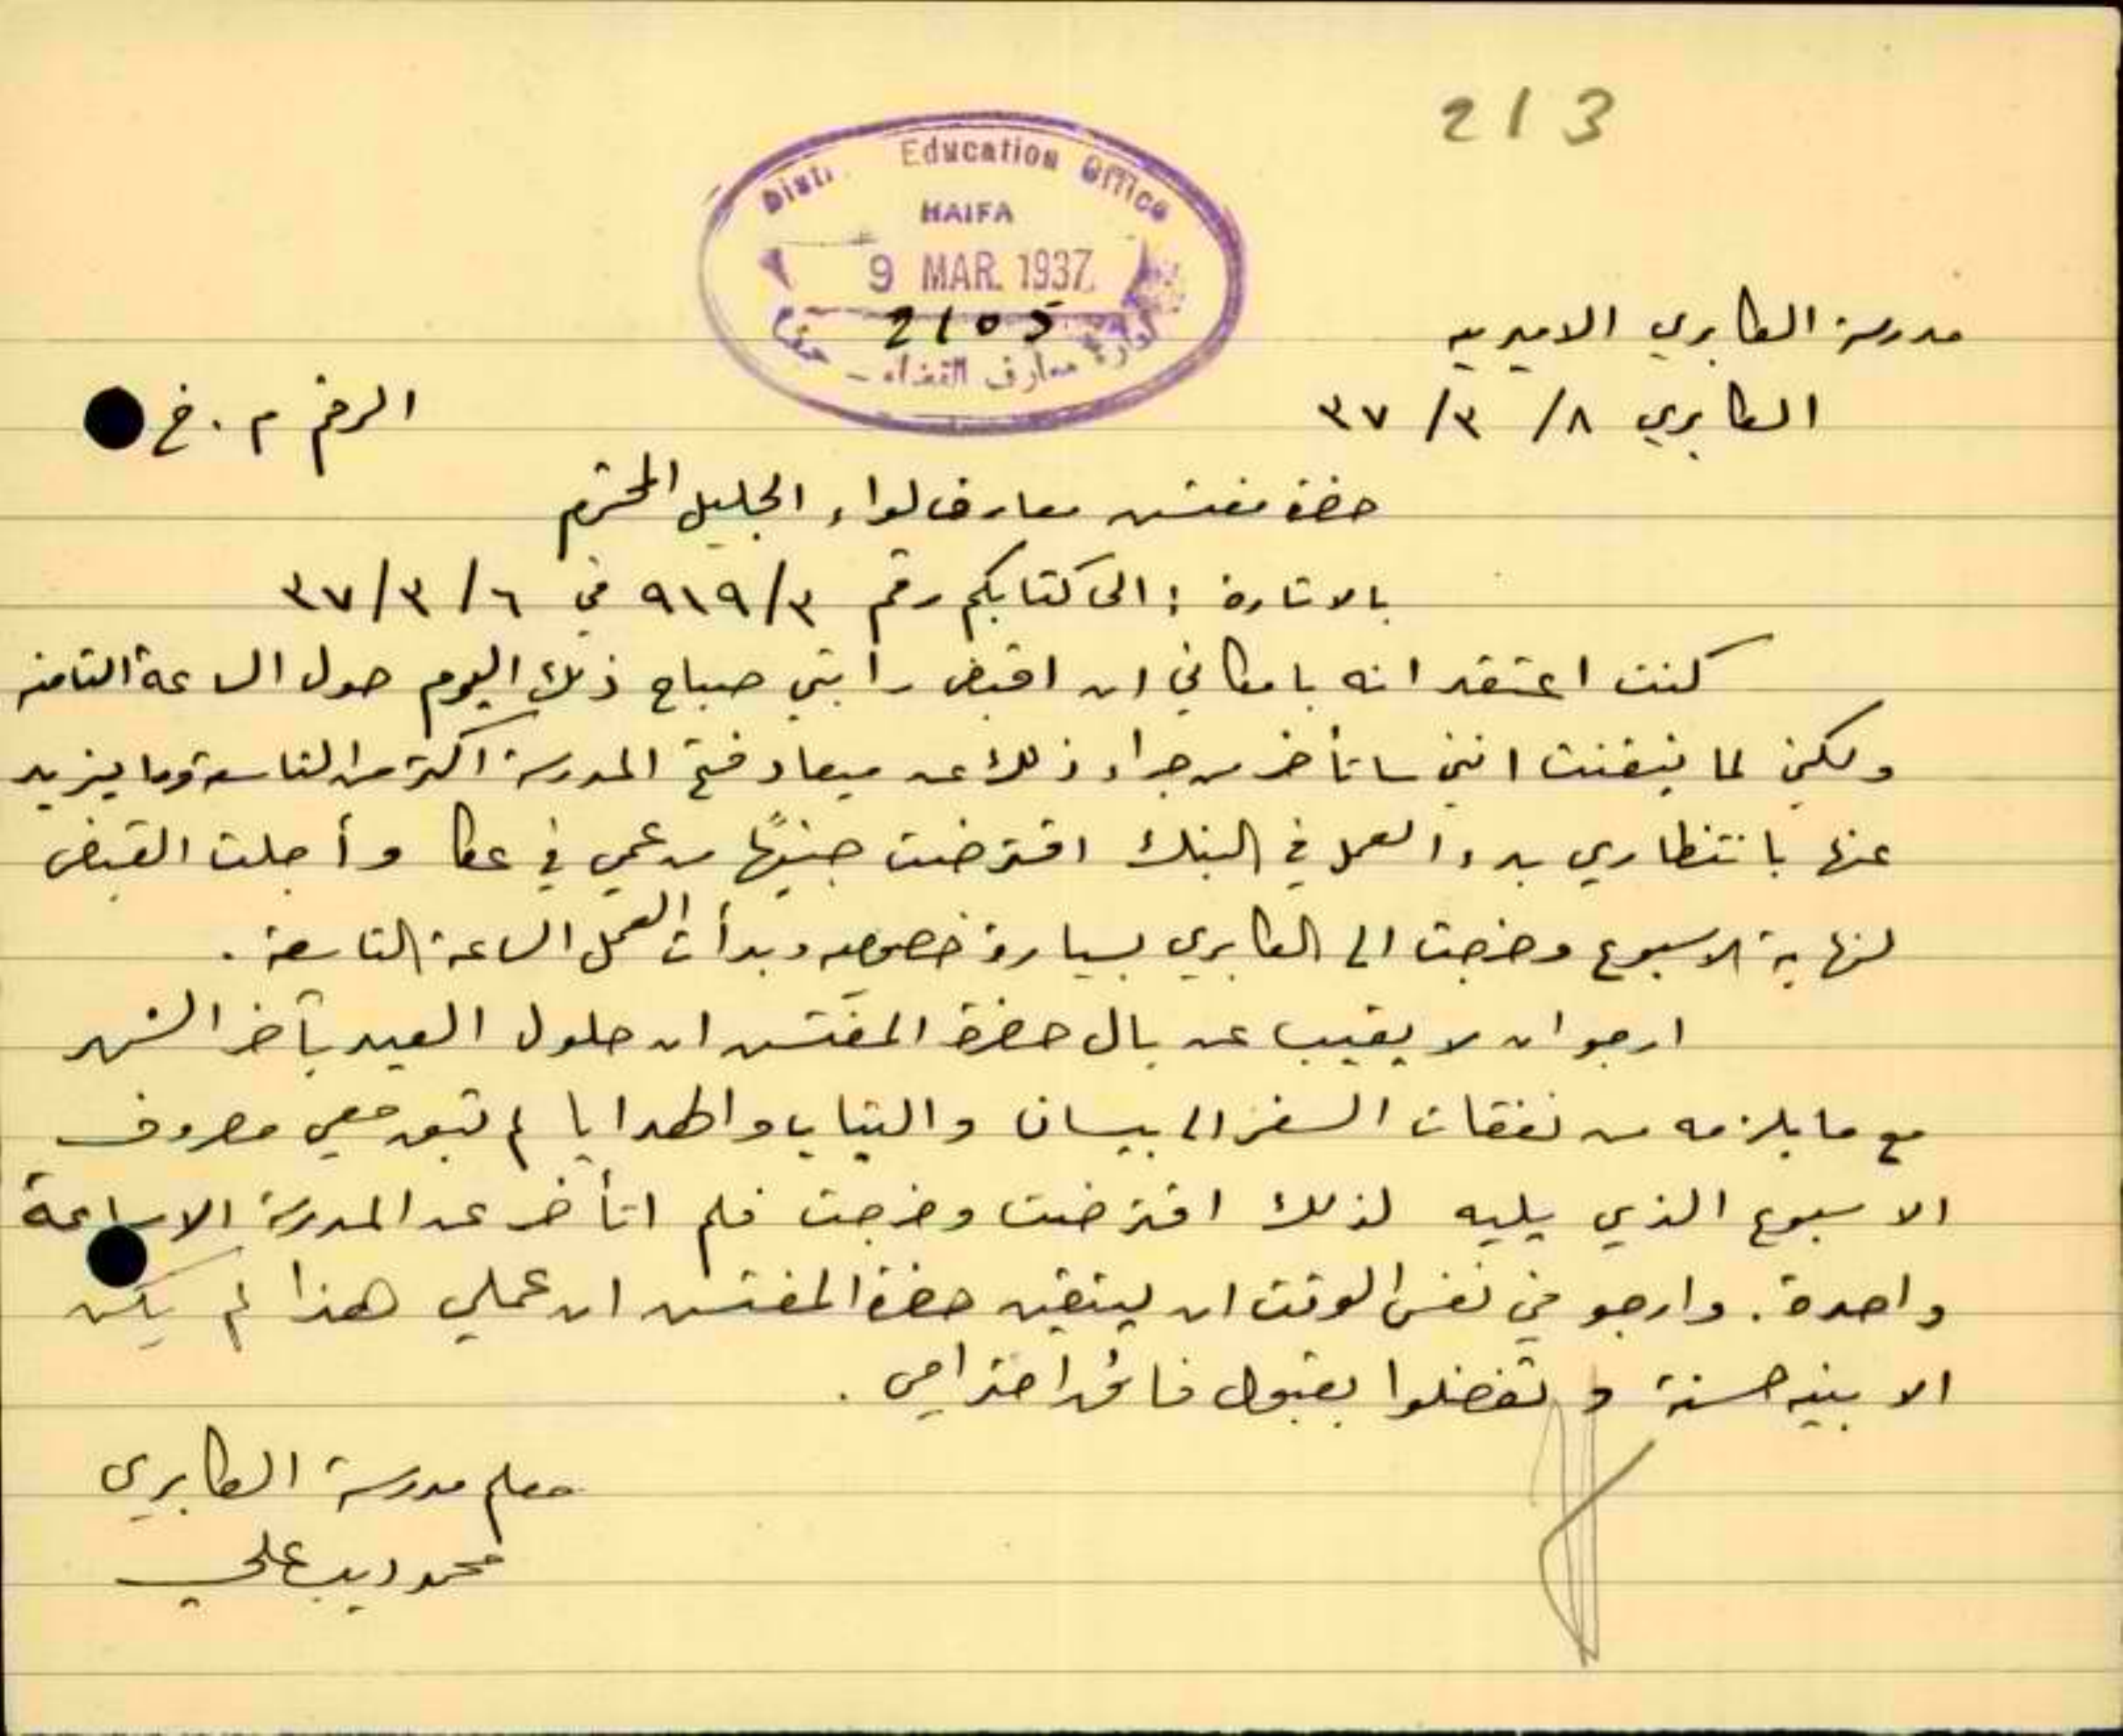 213
Distr. Education Office
HAIFA
9 MAR. 1937
2105
ادارة معارف القضاء - حيفا
مدرسة الكابري الاميريه
الكابري ٨/ ٣/ ٣٧
الرقم م . خ
حضرة مفتش معارف لواء الجليل المحترم
بالاشارة : الى كتابكم رقم ٩١٩/٣ في ٣٧/٣/٦
كنت اعتقد انه بامكاني ان اقبض راتبي صباح ذلك اليوم حول الساعة الثامنه
ولكني لما تيقنت انني ساتأخر من جراء ذلك عن ميعاد فتح المدرسة اكثر من التاسعة وما يزيد
عنها بانتظاري بدء العمل في البنك اقترضت جنيهًا من عمي في عكا وأجلت القبض
لنهاية الاسبوع وخرجت الى الكابري بسيارة خصوصيه وبدأت العمل الساعة التاسعة .
ارجو ان لا يغيب عن بال حضرة المفتش ان حلول العيد بآخر الشهر
مع ما يلزمه من نفقات السفر الى بيسان والثياب والهدايا لم تبق معي مصروف
الاسبوع الذي يليه لذلك اقترضت وخرجت فلم اتأخر عن المدرسة الا ساعة
واحدة . وارجو في نفس الوقت ان يتيقن حضرة المفتش ان عملي هذا لم يكن
الا بنيه حسنة و تفضلوا بقبول فائق احترامي .
معلم مدرسة الكابري
محمد ديب علي